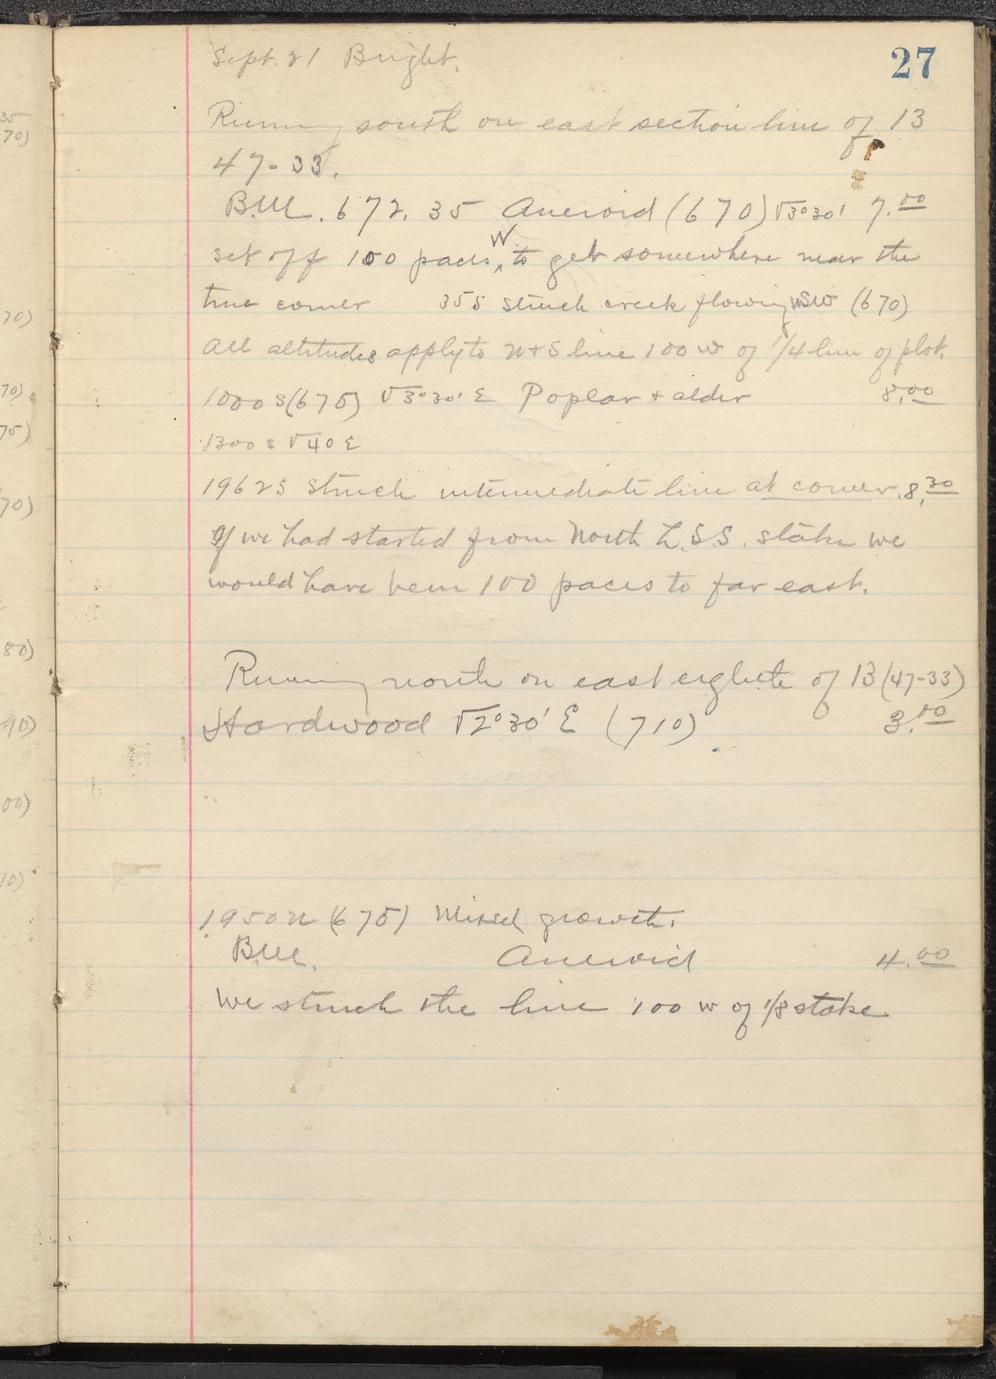 27
Sept. 21 Bright.
Running south on east section line of 13
47-33.
B.M. 672.35 Aneroid (670) V3°30' 7.00
set off 100 paces W to get somewhere near the
true corner 355 struck creek flowing WSW (670)
All altitudes apply to N+S line 100 W of 1/4 line of plot.
1000 S (675) V3°30' E Poplar + alder 8.00
1300 S V40 E
1962 S struck intermediate line at corner. 8.30
If we had started from North L.S.S. stake we
would have been 100 paces to far east.
Running north on east eighth of 13 (47-33)
Hardwood V2°30' E (710) 3.00
1950 N (675) Mixed growth.
B.M. Aneroid 4.00
We struck the line 100 W of 1/8 stake
35
70)
70)
70)
75)
70)
80)
90)
00)
10)